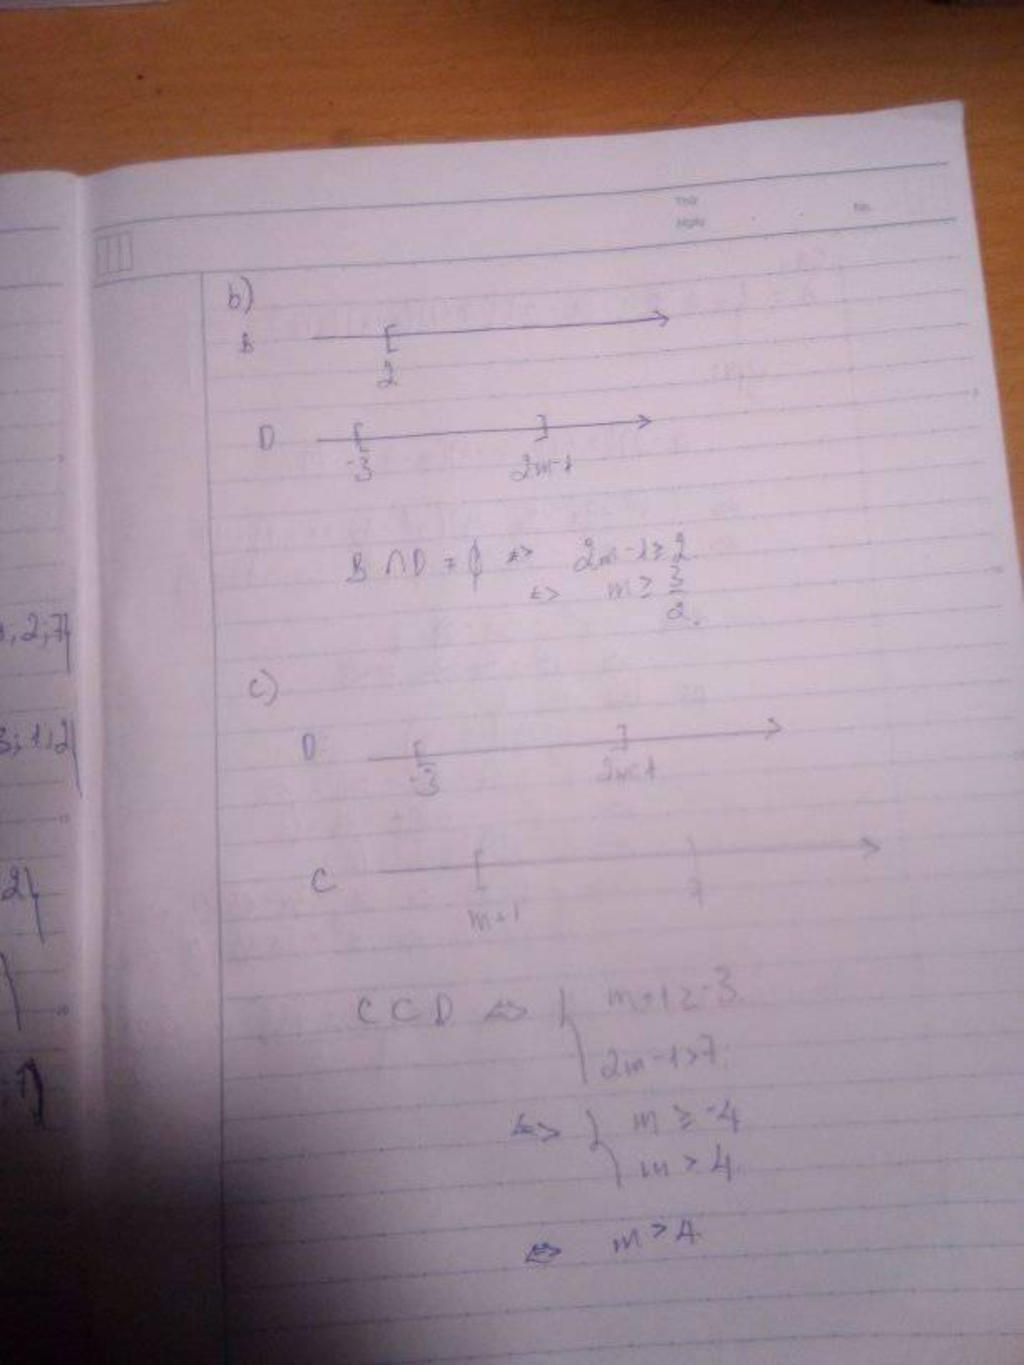 Thứ
Ngày
No.
b)
B
[
2
D
[ ]
-3 2m-1
B ∩ D ≠ ∅ <=> 2m-1 ≥ 2
<=> m ≥ 3/2.
c)
D
[ ]
-3 2m-1
C
[ )
m+1 7
C ⊂ D <=> { m+1 ≥ -3
2m-1 > 7
<=> { m ≥ -4
m > 4
<=> m > 4
, 2; 7}
3; 1; 2}
2}